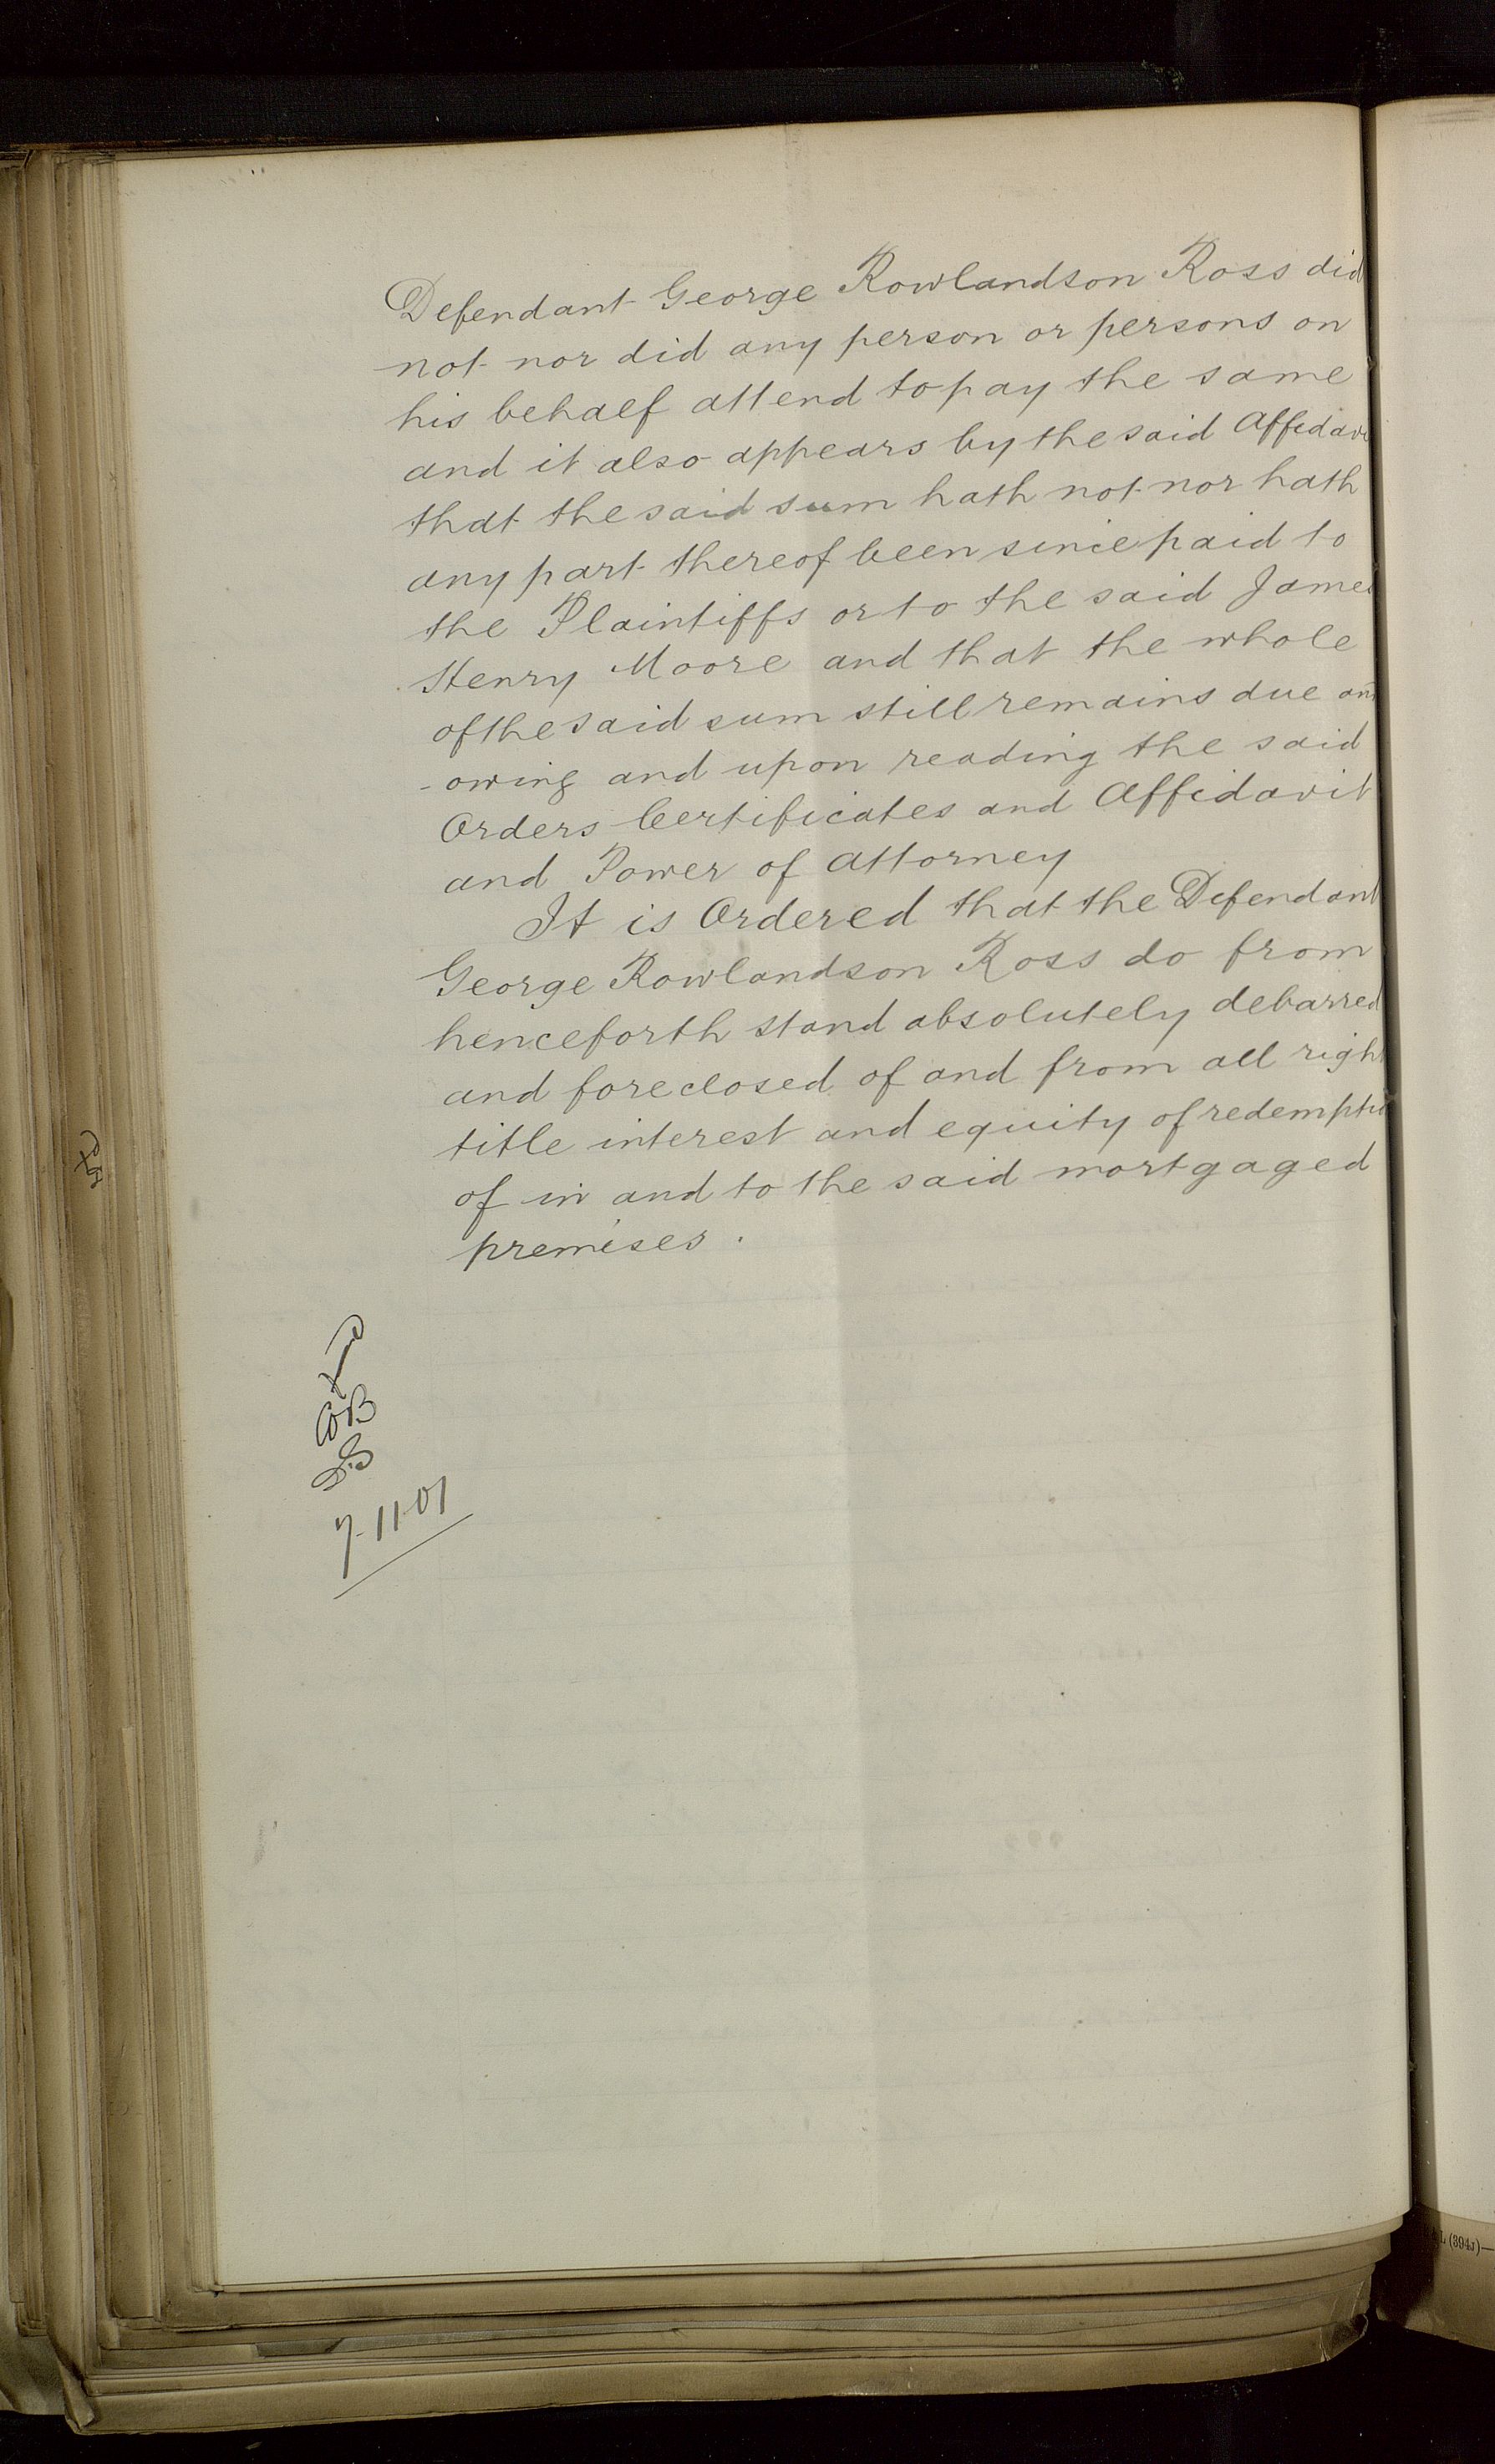 Defendant George Rowlandson Ross did
not nor did any person or persons on
his behalf attend to pay the same
and it also appears by the said Affidavi
that the said sum hath not nor hath
any part thereof been since paid to
the Plaintiffs or to the said James
Henry Moore and that the whole
of the said sum still remains due and
owing and upon reading the said
Orders Certificates and Affidavit
and Power of Attorney
It is Ordered that the Defendant
George Rowlandson Ross do from
henceforth stand absolutely debarred
and foreclosed of and from all right
title interest and equity of redemptio
of in and to the said mortgaged
premises.
7-11-01
L (394J)—